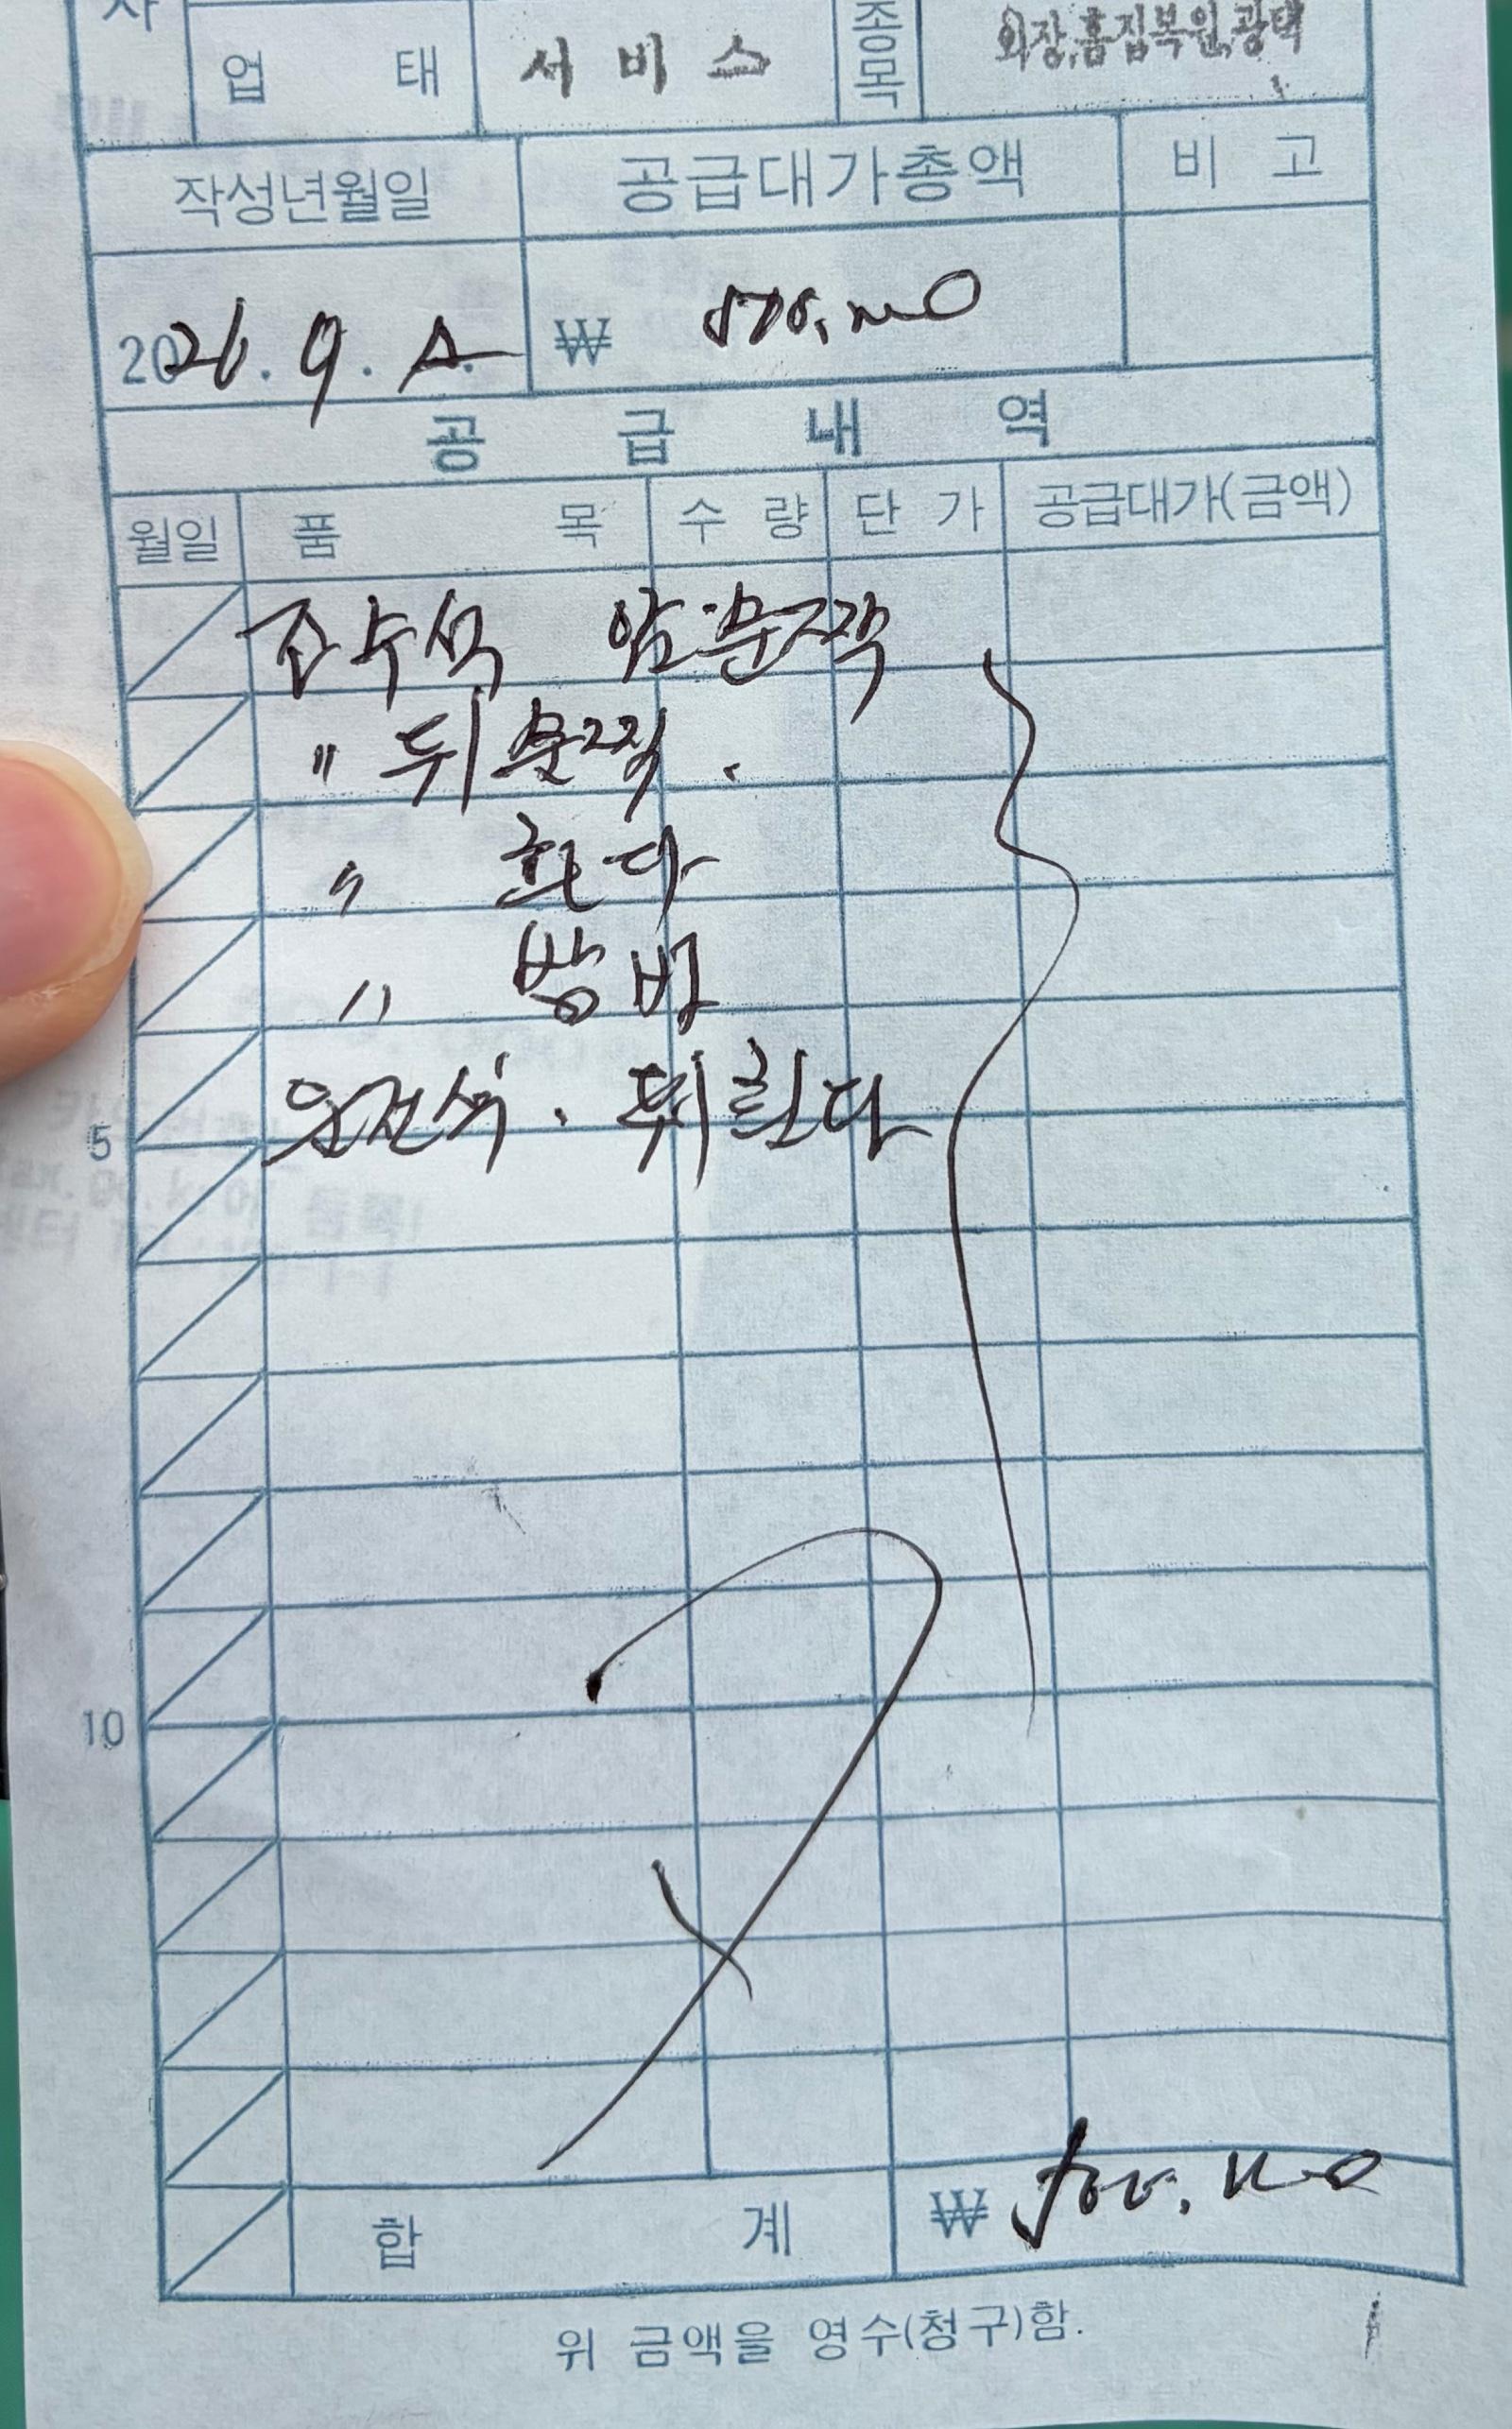 업 태 서 비 스 종목 외장,흠집복원,광택
작성년월일 공급대가총액 비 고
2026. 9. ₩
공 급 내 역
월일 품 목 수 량 단 가 공급대가(금액)
조수석 앞문짝
〃 뒤문짝.
〃 휀다
〃 빵바
5 운전석. 뒤휀다
10
합 계 ₩
위 금액을 영수(청구)함.